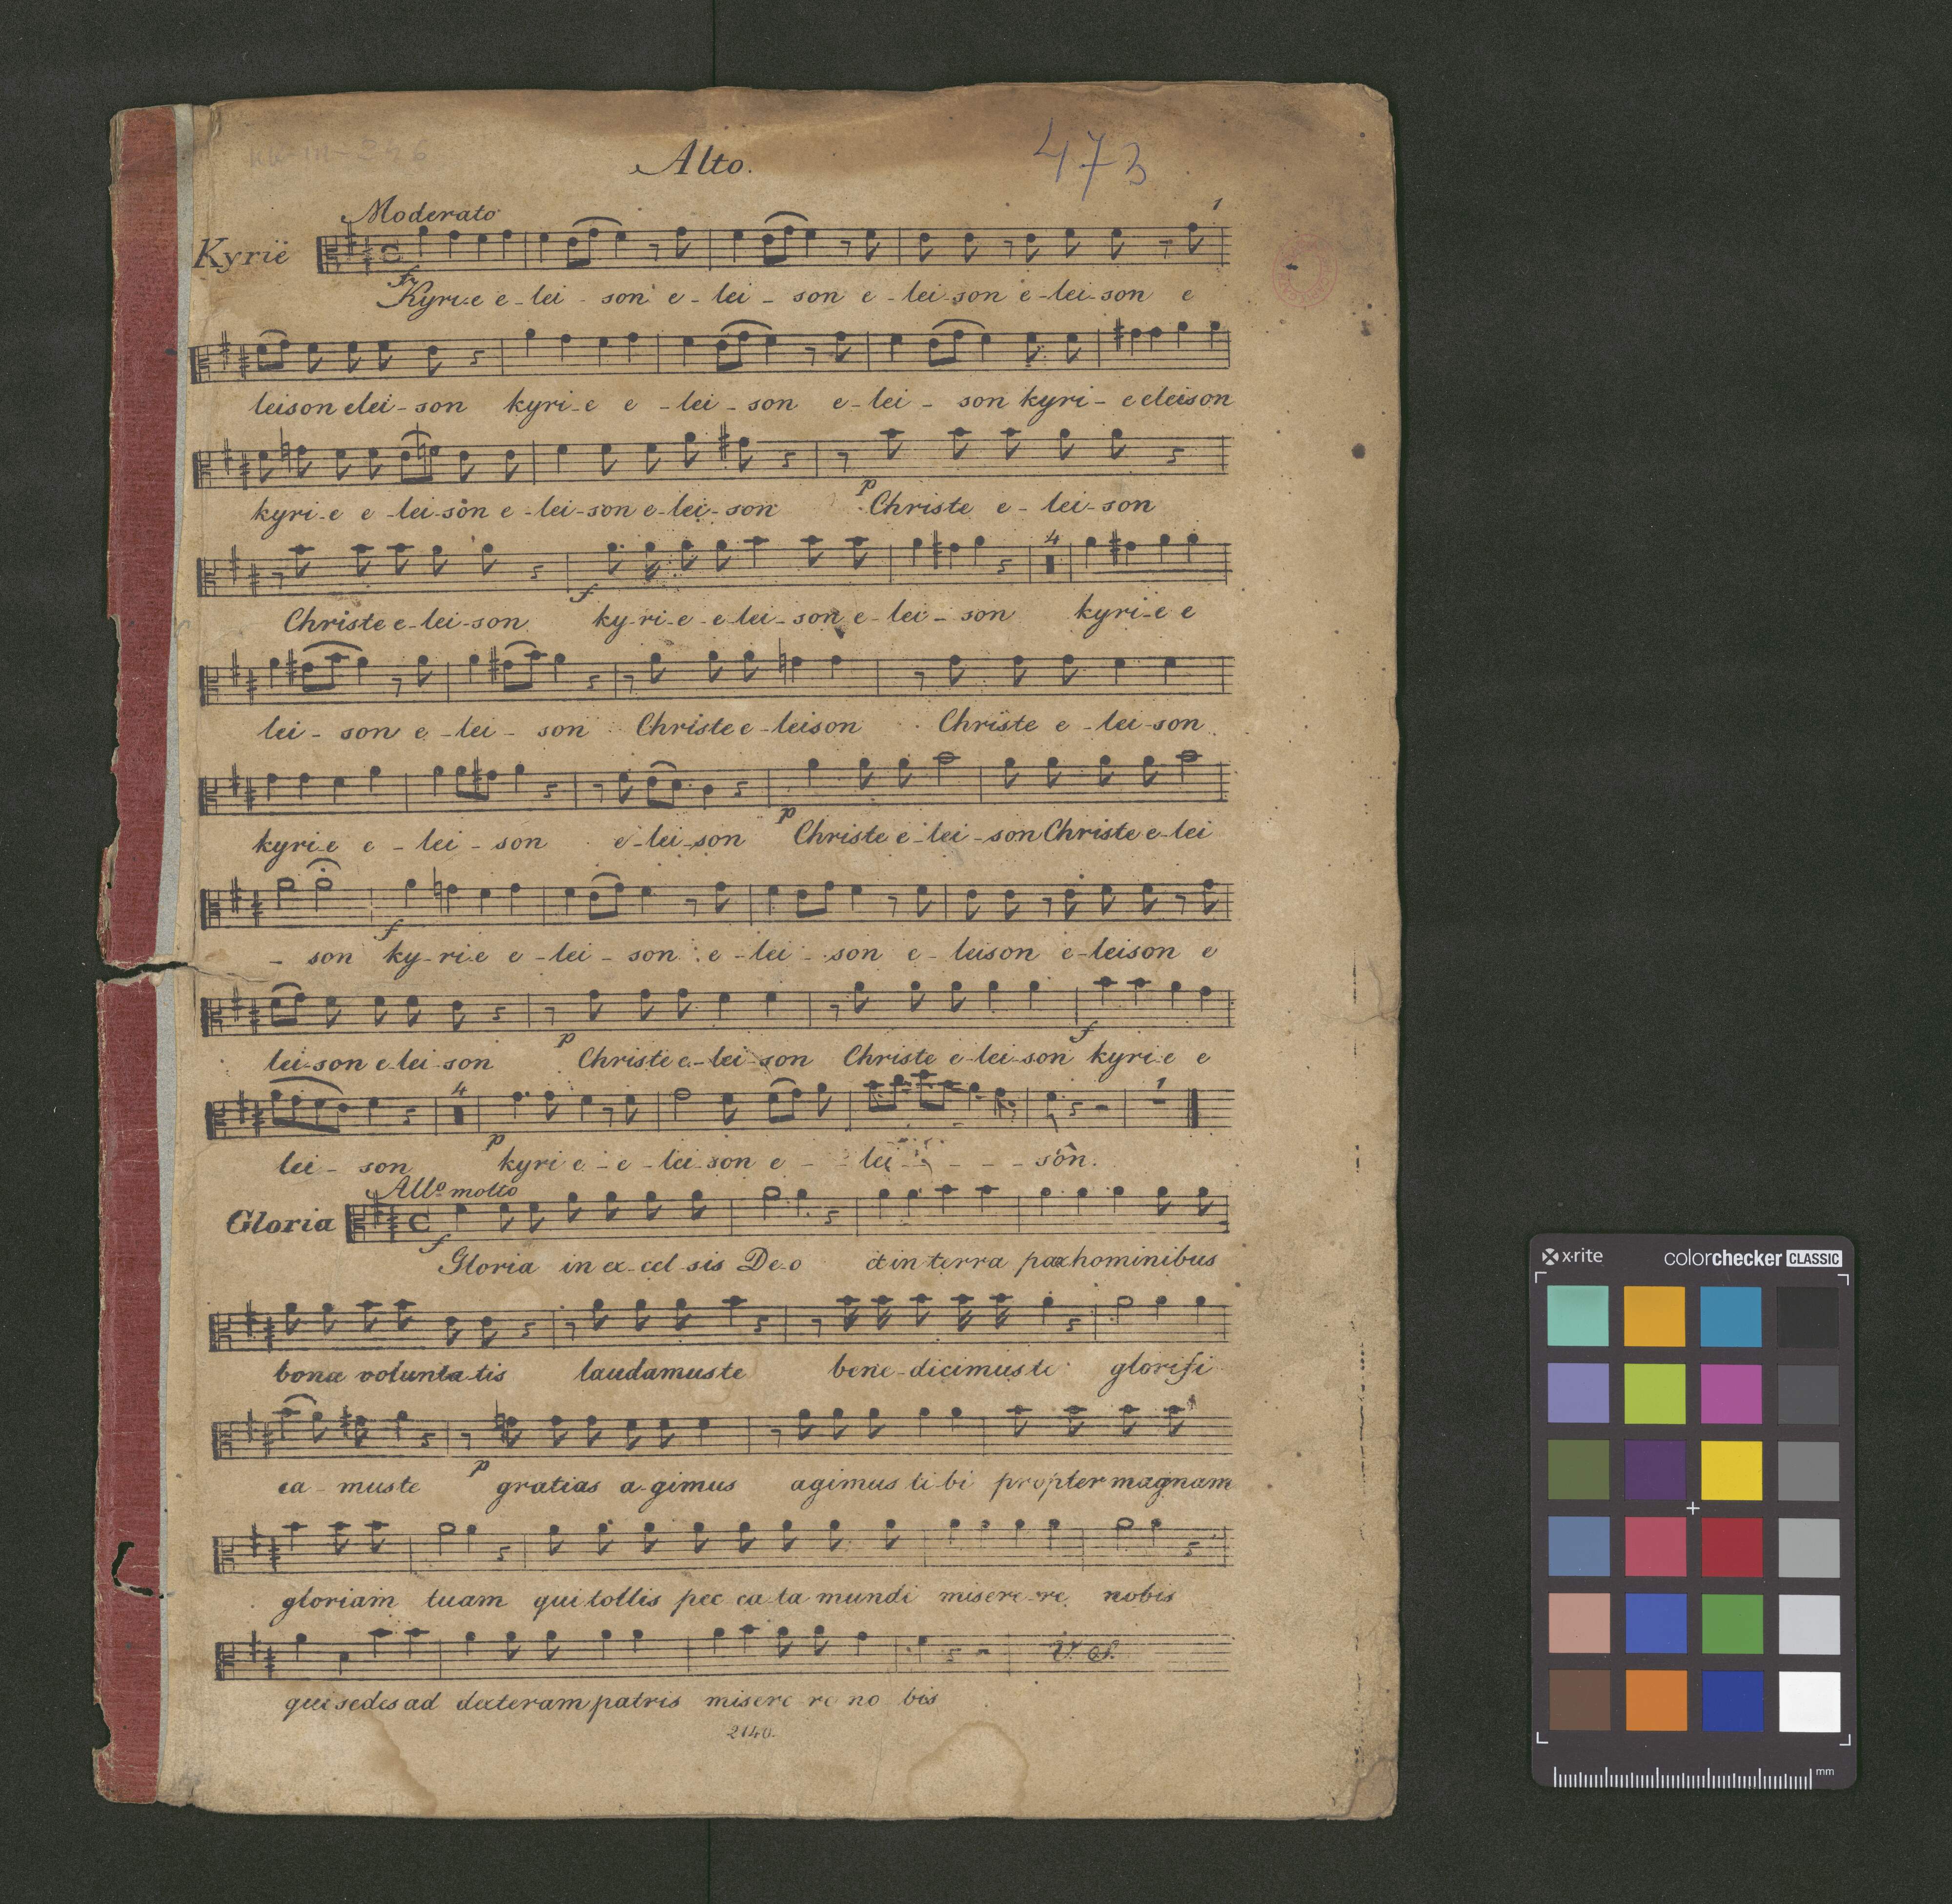 Alto.
473
1
Moderato
Kyrië
f
Kyri-e e-lei-son e-lei-son e-lei-son e-lei-son e
leison elei-son kyri-e e-lei-son e-lei-son kyri-e eleison
kyri-e e-lei-son e-lei-son e-lei-son p Christe e-lei-son
4
f
Christe e-lei-son ky-ri-e-e-lei-son e-lei-son kyri-e e
lei-son e-lei-son Christe e-leison Christe e-lei-son
p
kyri-e e-lei-son e-lei-son Christe e-lei-son Christe e-lei
f
-son ky-rie e-lei-son e-lei-son e-leison e-leison e
p f
lei-son e-lei-son Christe e-lei-son Christe e-lei-son kyri-e e
4 1
p
lei-son kyri e-e-lei-son e--lei---son.
All.º molto
Gloria
f
Gloria in ex-cel-sis De-o et in terra pax hominibus
bonæ voluntatis laudamuste bene-dicimuste glorifi
p
ca-muste gratias a-gimus agimus ti-bi propter magnam
gloriam tuam qui tollis pec ca ta mundi misere-re nobis
V. S.
qui sedes ad dexteram patris misere re no bis
2140.
x-rite colorchecker CLASSIC
mm